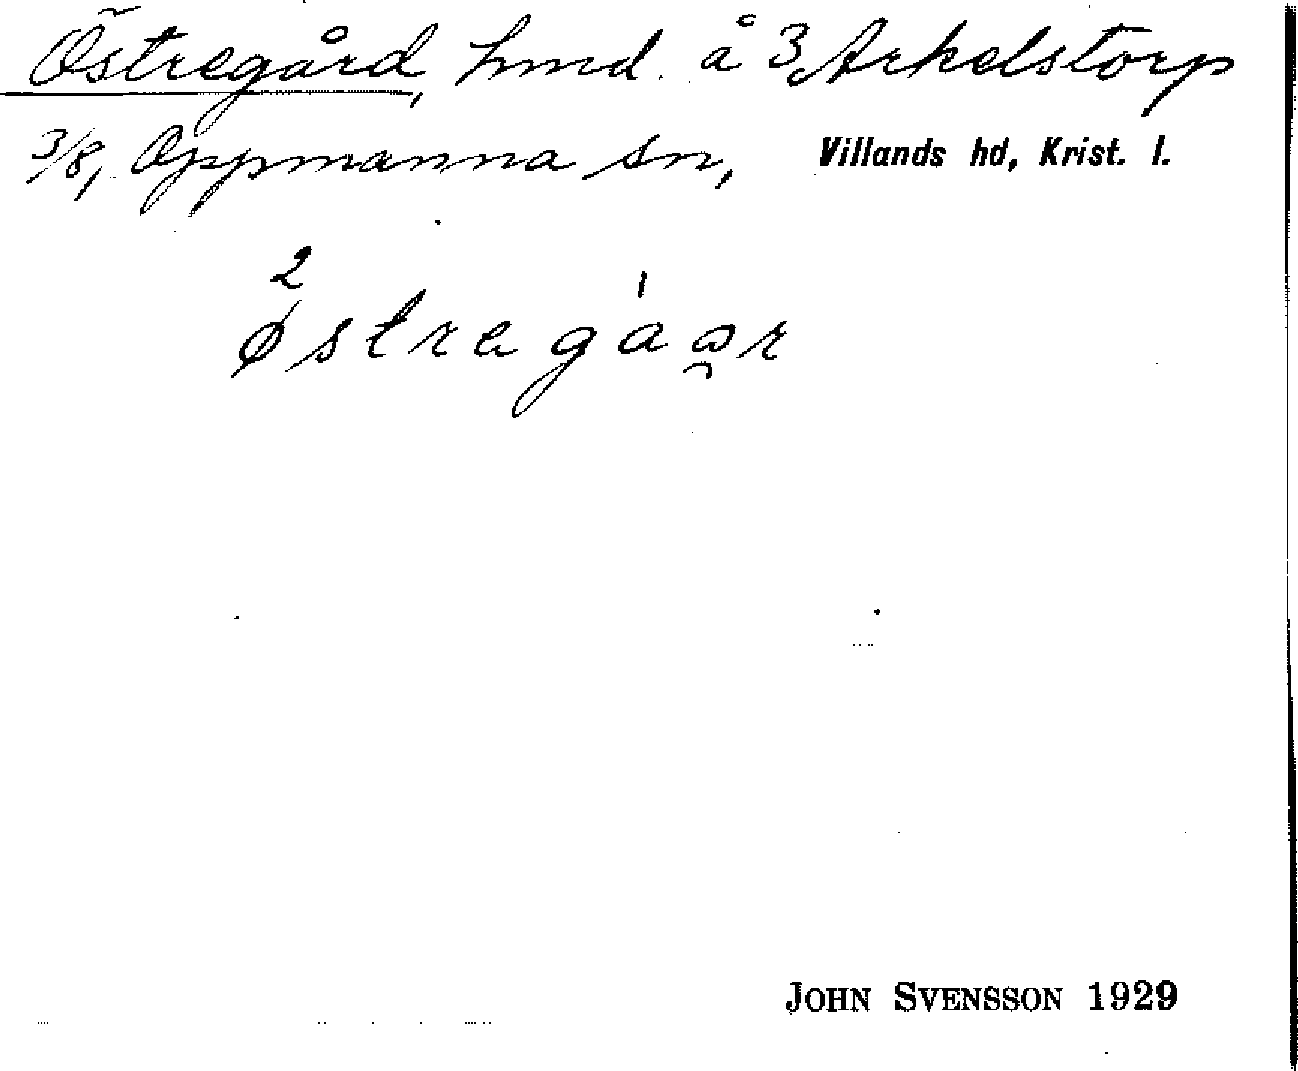 Östregård, hmd. å 3 Arkelstorp
3/8, Oppmanna sn, Villands hd, Krist. l.
2 1
østregaar
JOHN SVENSSON 1929